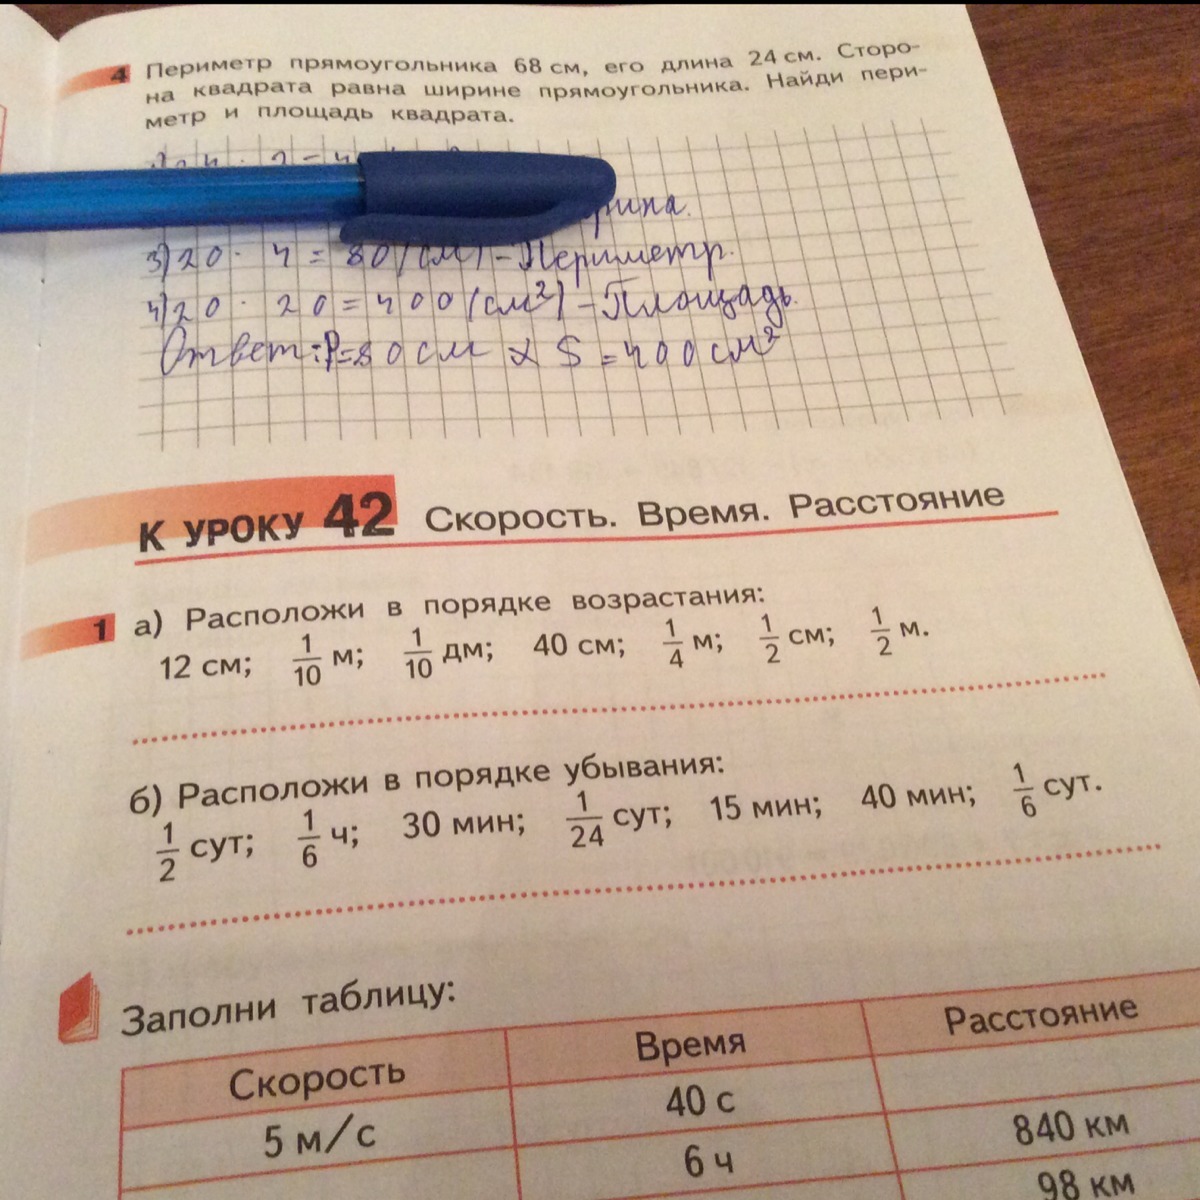 4 Периметр прямоугольника 68 см, его длина 24 см. Сторо-
на квадрата равна ширине прямоугольника. Найди пери-
метр и площадь квадрата.
3) 20 · 4 = 80 (см) - Периметр.
4) 20 · 20 = 400 (см²) - Площадь.
Ответ: P=80 см S = 400 см²
К УРОКУ 42 Скорость. Время. Расстояние
1 а) Расположи в порядке возрастания:
12 см; 1/10 м; 1/10 дм; 40 см; 1/4 м; 1/2 см; 1/2 м.
б) Расположи в порядке убывания:
1/2 сут; 1/6 ч; 30 мин; 1/24 сут; 15 мин; 40 мин; 1/6 сут.
Заполни таблицу:
Скорость Время Расстояние
5 м/с 40 с
6 ч 840 км
98 км